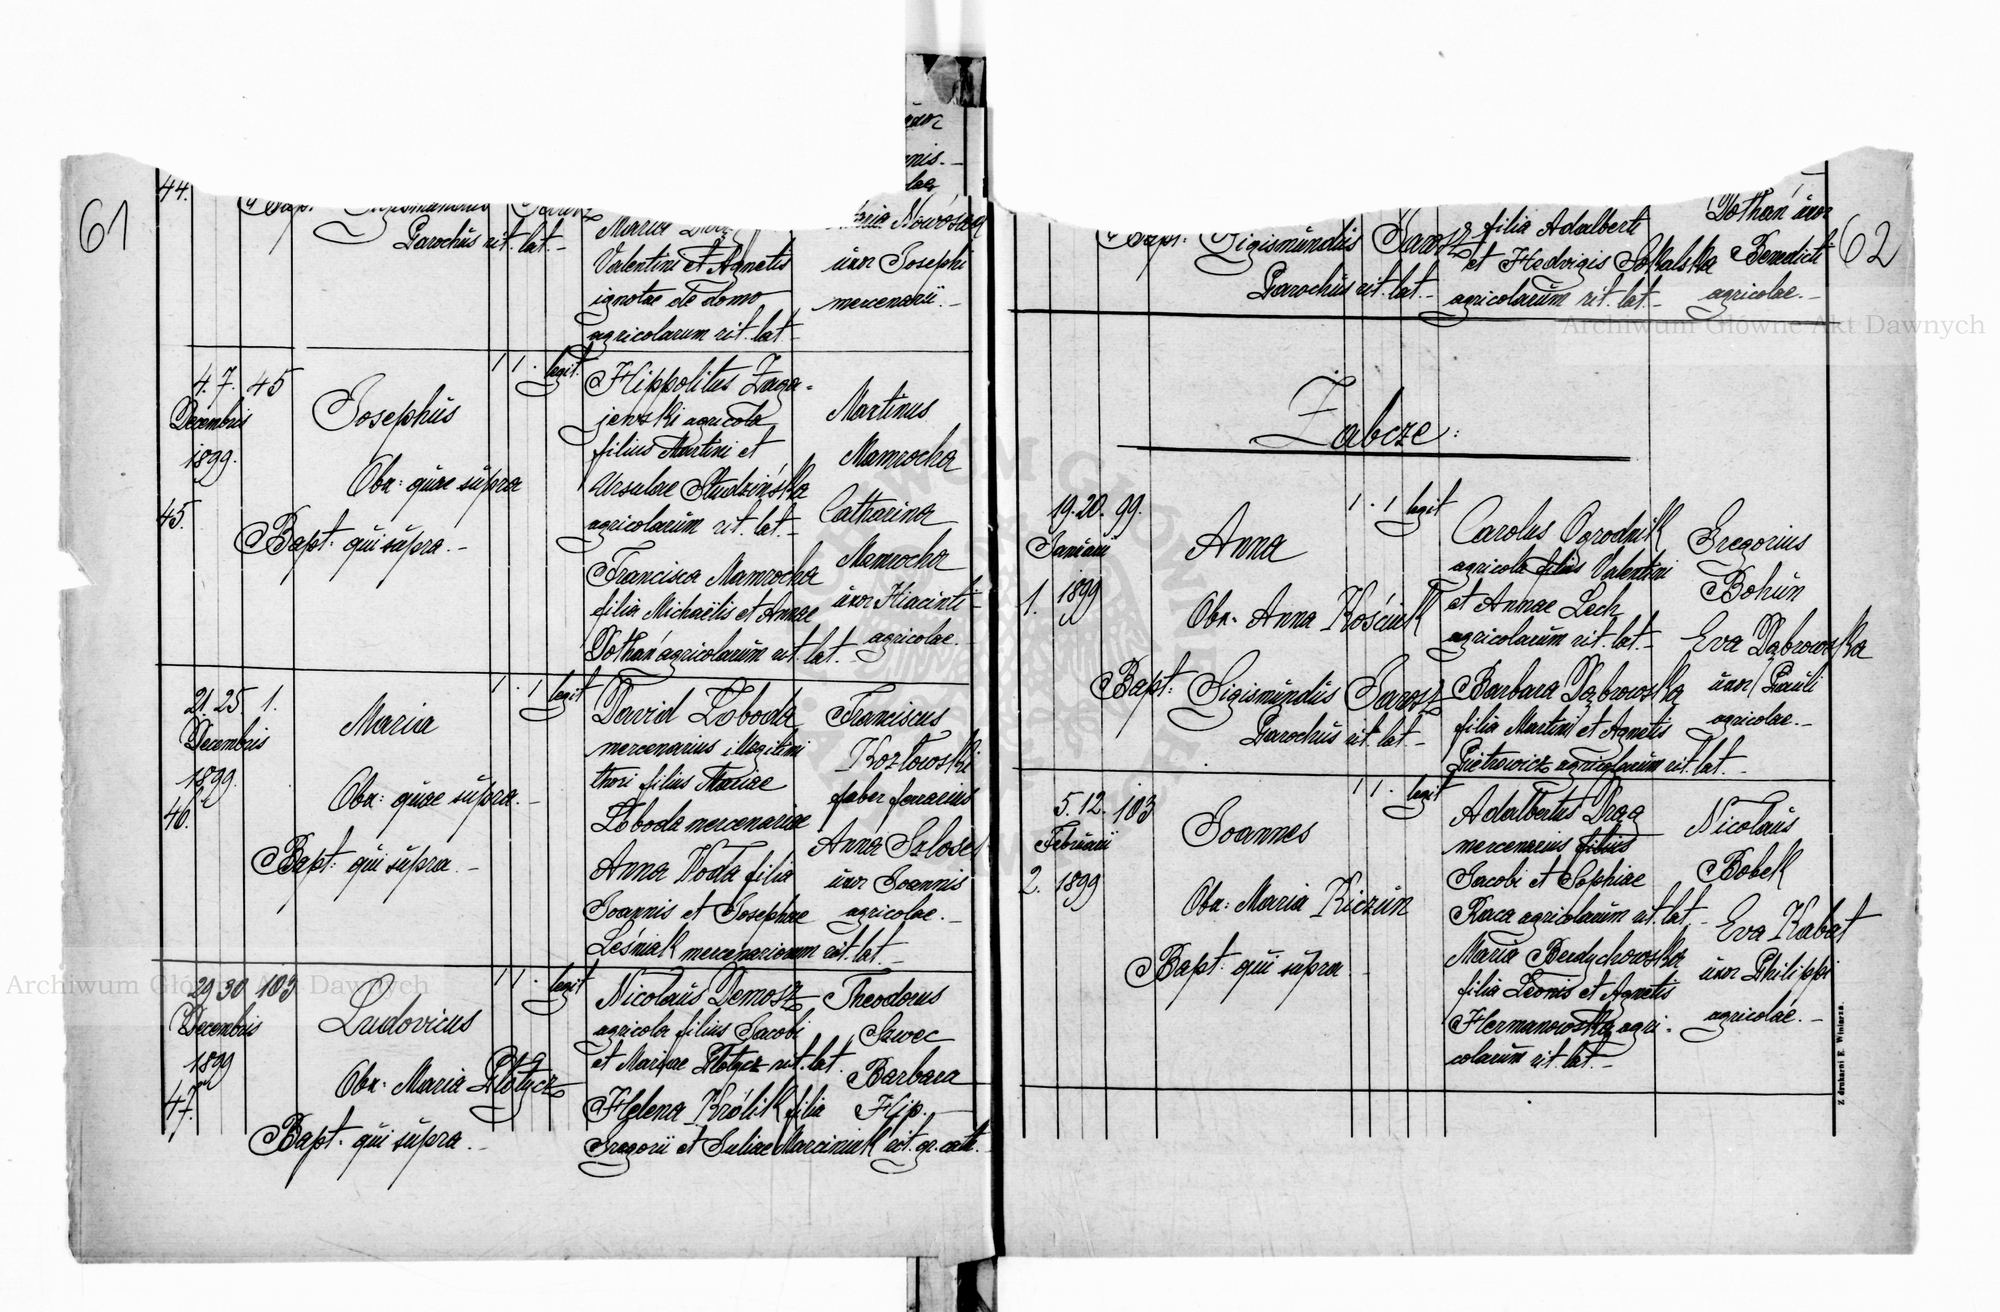 61
44.
Parochus rit. lat.
Maria
Valentini et Agnetis
ignotae de domo
agricolarum rit. lat.
uxor Josephi
mercenarii.
4. 7. 45
Decembris
1899.
45.
Josephus
Obn: quae supra
Bapt: qui supra.
1 1. legit.
Hippolitus Zaga-
jewski agricola
filius Martini et
Ursulae Studzińska
agricolarum rit. lat.
Francisca Mamrocha
filia Michaëlis et Annae
Dothań agricolarum rit. lat.
Martinus
Mamrocha
Catharina
Mamrocha
uxor Hiacinti
agricolae.
21. 25. 1.
Decembris
1899.
46.
Maria
Obn: quae supra.
Bapt: qui supra.
1. 1 legit
David Łoboda
mercenarius illegitimi
thori filius Mariae
Łoboda mercenariae
Anna Woda filia
Joannis et Josephae
Leśniak mercenariorum rit. lat.
Franciscus
Kozłowski
faber ferrarius
Anna
uxor Joannis
agricolae.
29. 30. 103
Decembris
1899
47.
Ludovicus
Obn: Maria Płotycz
Bapt: qui supra.
1 1. legit
Nicolaus Demosz
agricola filius Jacobi
et Mariae Płotycz rit. lat.
Helena Królik filia
Gregorii et Juliae Marciniuk rit. gr. cath.
Theodorus
Sawec
Barbara
Filip.
62
Bapt: Sigismundus Jarosz
Parochus rit. lat.
filia Adalberti
et Hedvigis Sokalska
agricolarum rit. lat.
Dothań uxor
Benedicti
agricolae.
Żabcze:
19. 20. 99.
Januarii
1. 1899
Anna
Obn: Anna Kościuk
Bapt: Sigismundus Jarosz
Parochus rit. lat.
1. 1 legit
Carolus Ogrodnik
agricola filius Valentini
et Annae Lech
agricolarum rit. lat.
Barbara Dąbrowska
filia Martini et Agnetis
Pietrowicz agricolarum rit. lat.
Gregorius
Bohun
Eva Dąbrowska
uxor Pauli
agricolae.
5. 12. 103
Februarii
2. 1899
Joannes
Obn: Maria Kiczun
Bapt: qui supra
1 1. legit
Adalbertus Drąg
mercenarius filius
Jacobi et Sophiae
Raca agricolarum rit. lat.
Maria Berdychowska
filia Leonis et Agnetis
Hermanowska agri-
colarum rit. lat.
Nicolaus
Bobek
Eva Kabat
uxor Philippi
agricolae.
Z drukarni E. Winiarza.
Archiwum Główne Akt Dawnych
Archiwum Główne Akt Dawnych